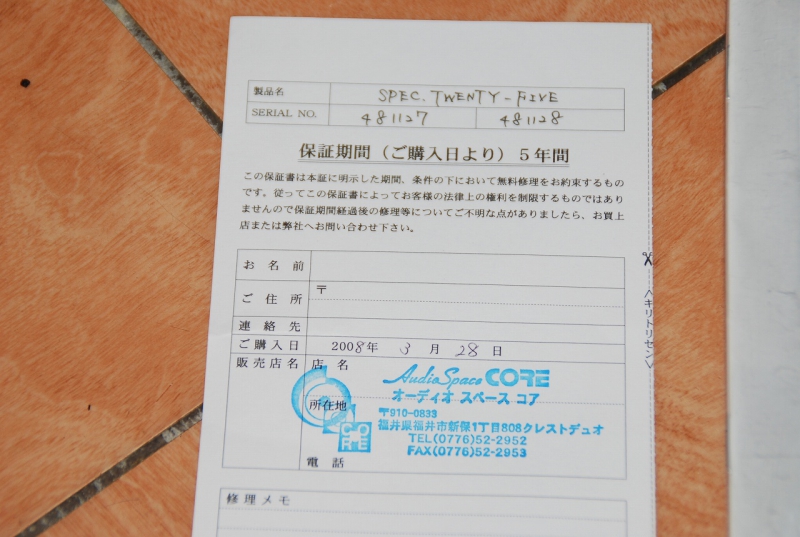 製品名 SPEC. TWENTY-FIVE
SERIAL NO. 481127 481128
保証期間（ご購入日より）5年間
この保証書は本証に明示した期間、条件の下において無料修理をお約束するもの
です。従ってこの保証書によってお客様の法律上の権利を制限するものではあり
ませんので保証期間経過後の修理等についてご不明な点がありましたら、お買上
店または弊社へお問い合わせ下さい。
お名前
ご住所 〒
連絡先
ご購入日 2008年 3月 28日
販売店名 店名
Audio Space CORE
オーディオ スペース コア
所在地
〒910-0833
福井県福井市新保1丁目808クレストデュオ
TEL(0776)52-2952
FAX(0776)52-2953
CORE
電話
修理メモ
＜キリトリセン＞